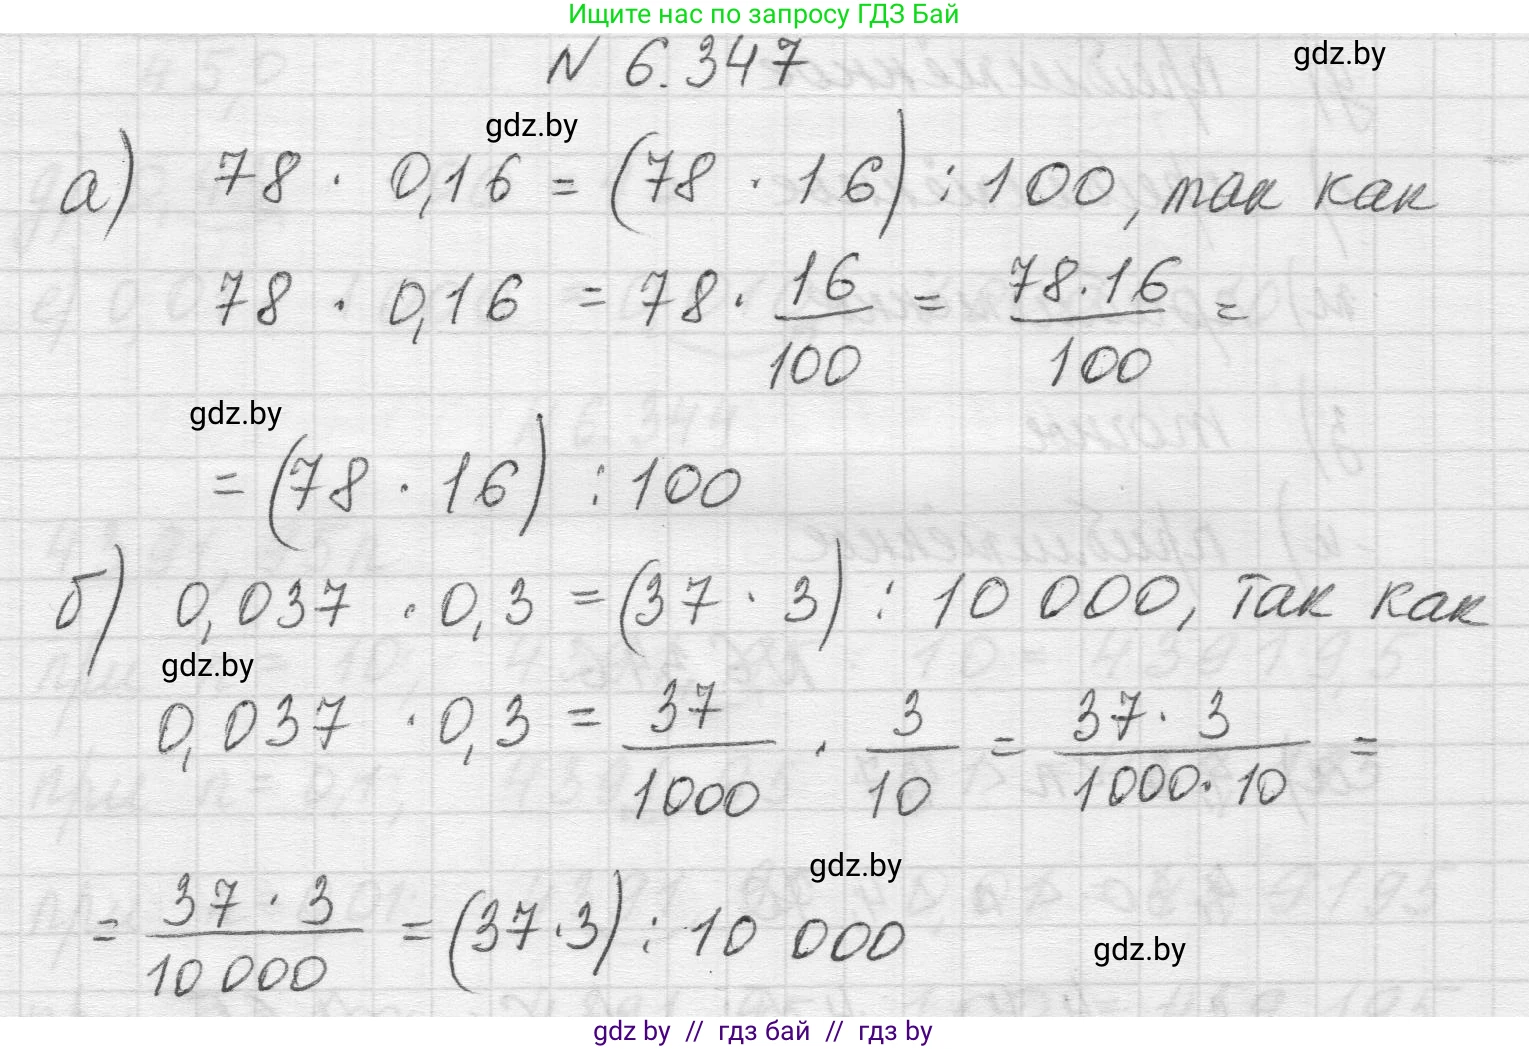 Ищите нас по запросу ГДЗ Бай
N 6.347
gdz.by
gdz.by
а) 78 · 0,16 = (78 · 16) : 100, так как
78 · 0,16 = 78 · 16/100 = 78·16/100 =
gdz.by
= (78 · 16) : 100
б) 0,037 · 0,3 = (37 · 3) : 10 000, так как
gdz.by
0,037 · 0,3 = 37/1000 · 3/10 = 37 · 3/1000 · 10 =
gdz.by
= 37 · 3/10 000 = (37·3) : 10 000
gdz.by
gdz by // гдз бай // гдз by